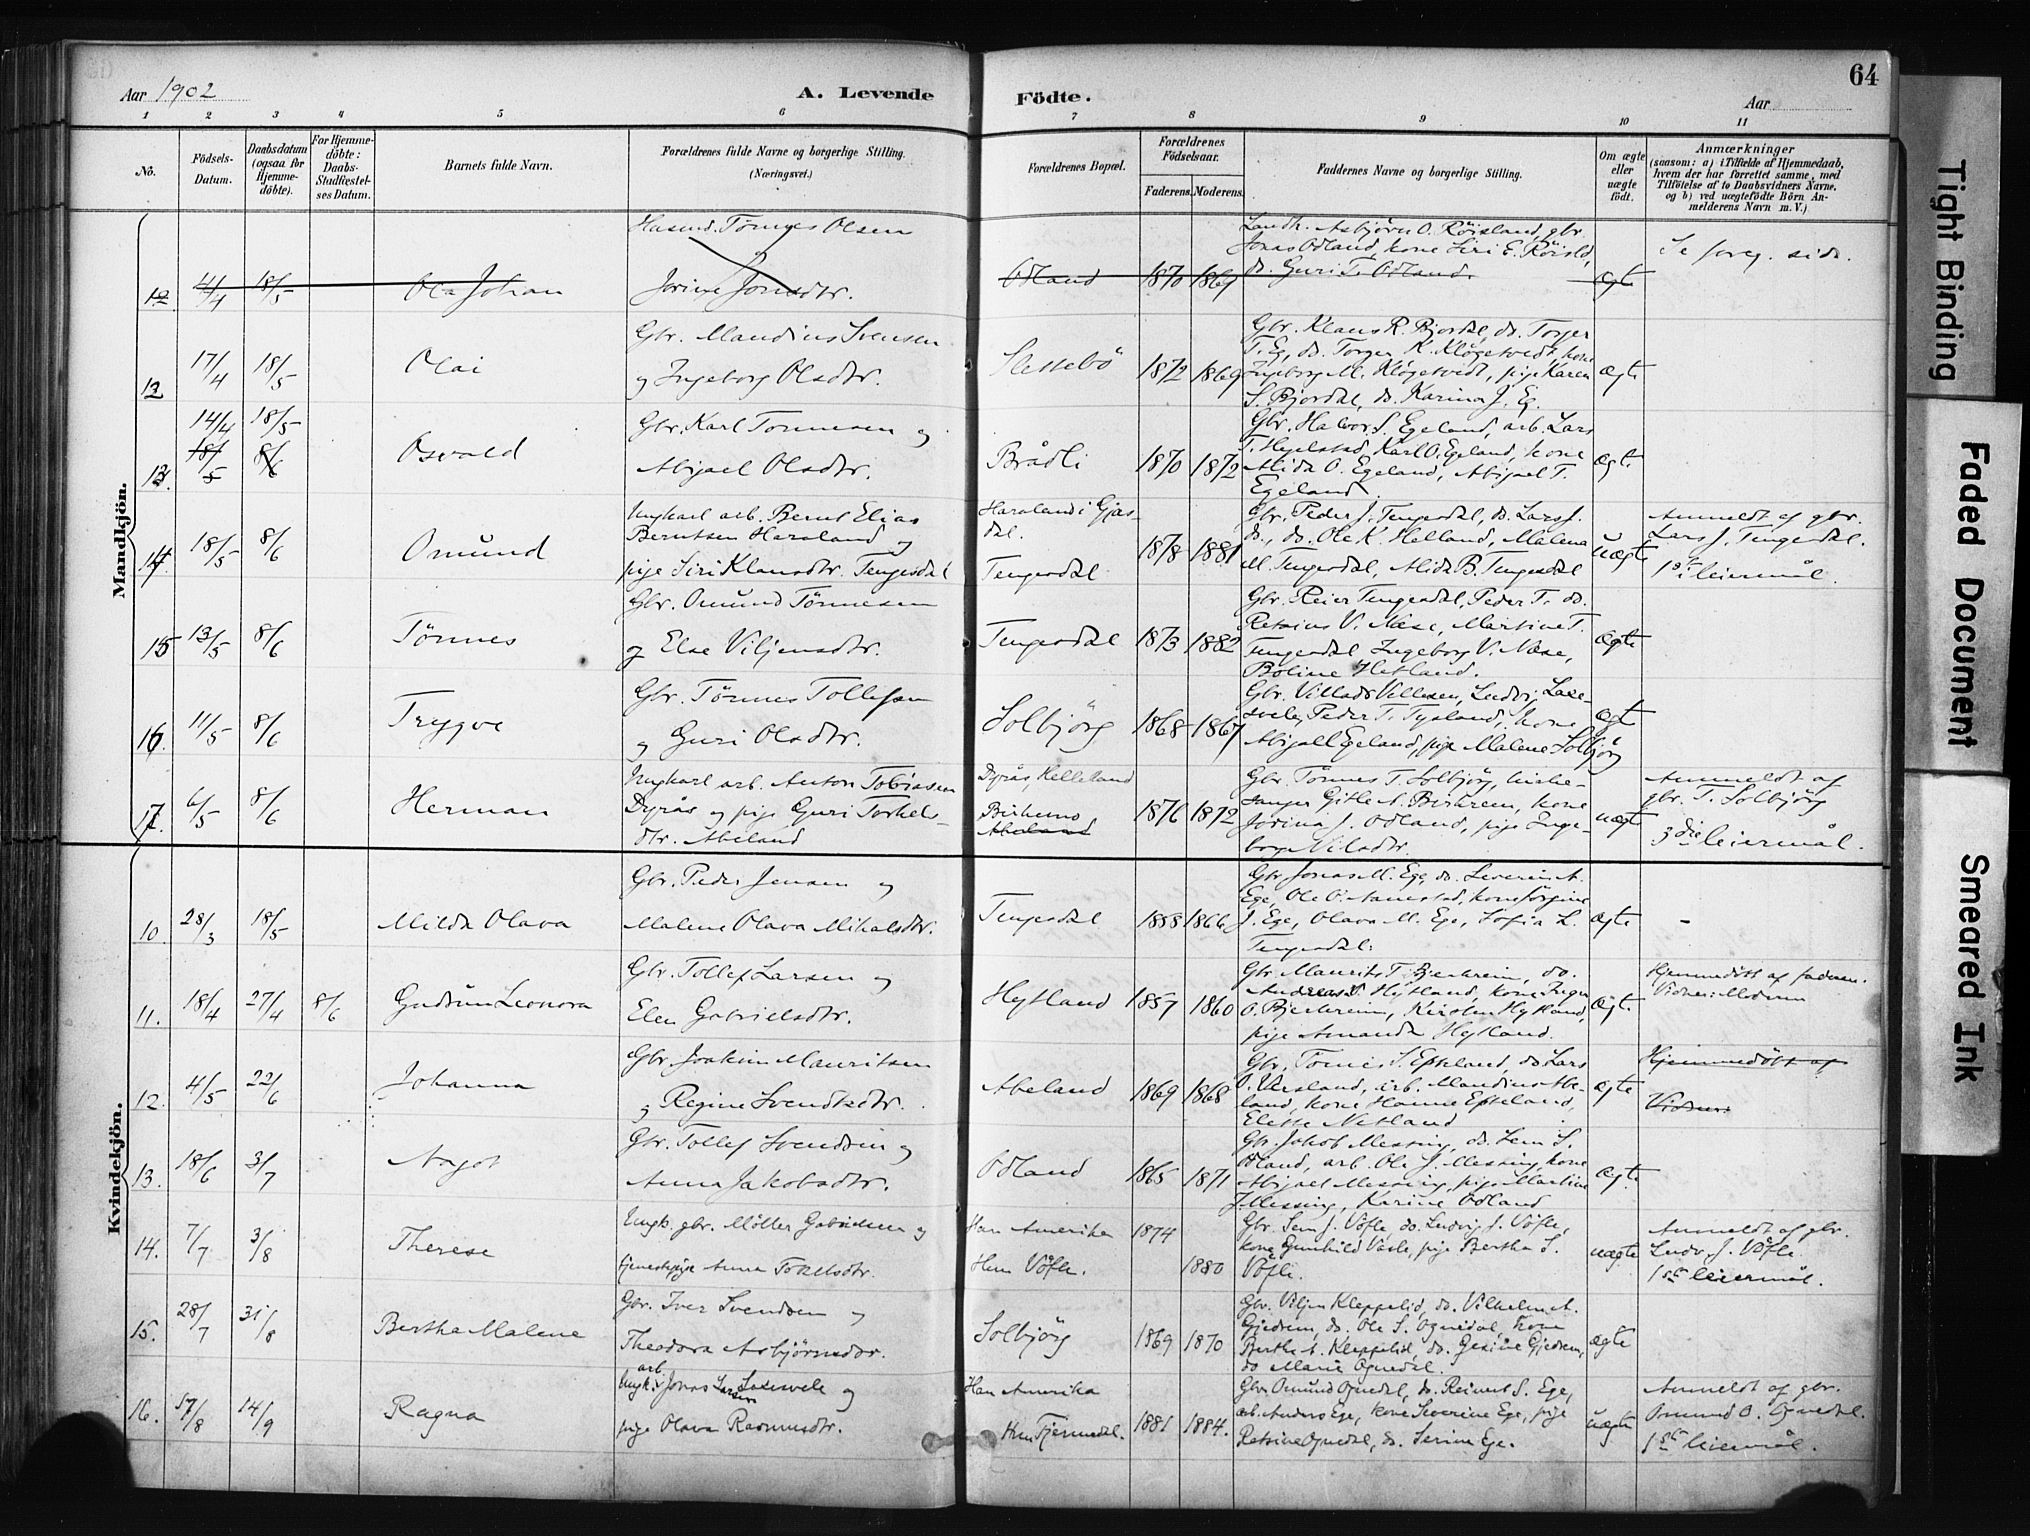 Aar 1902
A. Levende
Födte.
Aar
64
1 2 3 4 5 6 7 8 9 10 11
No.
Födsels-
Datum.
Daabsdatum
(ogsaa for
Hjemme-
döbte).
For Hjemme-
döbte:
Daabs-
Stadfæstel-
ses Datum.
Barnets fulde Navn.
Forældrenes fulde Navne og borgerlige Stilling.
(Næringsvei.)
Forældrenes Bopæl.
Forældrenes
Födselsaar.
Faderens. Moderens.
Faddernes Navne og borgerlige Stilling.
Om ægte
eller
uægte
födt.
Anmærkninger
(saasom: a) i Tilfælde af Hjemmedaab,
hvem der har forrettet samme, med
Tilföielse af to Daabsvidners Navne,
og b) ved uægtefödte Börn An-
melderens Navn m. V.)
Mandkjön.
12 4/4 18/5 Ola Johan
Tønnes Olsen
Jorine Jonsdtr.
Odland 1870 1869
Landh. Asbjørn O. Röisland, gbr.
Jonas Odland, kone Siri E.
do. Guri T. Odland.
ægte
Se foreg. side.
17/4 18/5 Olai
Gbr. Mandius Svensen
og Ingeborg Olsdtr.
Slettebö 1872 1869
Gbr. Klaus R. Bjordal, do. Torger
T. Eg, do. Torger K. Kløgetvedt, kone
Ingeborg M. Kløgetvedt, pige Karen
S. Bjordal, do. Karina J. Eg.
ægte
14/4 18/5
18/5 8/6 Osvald
Gbr. Karl Tonnesen og
Abigael Olsdtr.
Brådli 1870 1872
Gbr. Halvor S. Egeland, arb. Lars
T. Hegelstad, Karl O. Egeland, kone
Alida O. Egeland, Abigael T.
Egeland.
ægte
14 18/5 8/6 Omund
Ungkarl arb. Bernt Elias
Berntsen Haraland og
pige Siri Klausdtr. Tengesdal
Haraland i Gjes-
dal.
Tengesdal 1878 1881
Gbr. Peder J. Tengesdal, do. Lars J.
do., do. Ole K. Helland, Malena
M. Tengesdal, Alida B. Tengesdal
uægte
Anmeldt af gbr.
Lars J. Tengesdal.
1ste leiermål.
15 13/5 8/6 Tønnes
Gbr. Omund Tönnesen
og Else Viljensdtr.
Tengesdal 1873 1882
Gbr. Reier Tengesdal, Peder T. do.
Retsius V. Næse, Martine T.
Tengesdal Ingeborg V. Næse,
Boline Hetland.
ægte
16 11/5 8/6 Trygve
Gbr. Tønnes Tollefsen
og Guri Olsdtr.
Solbjörg 1868 1867
Gbr. Villads Villesen, Ludvig Lakse-
svele, Peder T. Tysland, kone
Abigall Egeland, pige Malene Solbjörg
ægte
17. 6/5 8/6 Herman
Ungkarl arb. Anton Tobiasen
Dyrås og pige Guri Torkels-
dtr. Abeland
Dyrås, Helleland
Birkemo
Abeland 1876 1872
Gbr. Tønnes T. Solbjörg, kirke-
sanger Gitle A. Birkrem, kone
Jorina J. Odland, pige Inge-
borg Nilsdtr.
uægte
Anmeldt af
gbr. T. Solbjörg
3die leiermål.
Kvindekjön.
10 28/3 18/5 Milda Olava
Gbr. Peder Jensen og
Malene Olava Mikalsdtr.
Tengesdal 1858 1866
Gbr. Jonas M. Ege, do. Severin A.
Ege, Ole O. Aamestad, kone Jörgine
J. Ege, Olava M. Ege, Sofia L.
Tengesdal.
ægte
-
11. 18/4 27/4 8/6 Gudrun Leonora
Gbr. Tollef Larsen og
Elen Gabrielsdtr.
Hytland 1857 1860
Gbr. Maurits T. Bjerkreim, do.
Andreas S. Hytland, kone Inger
O. Bjerkreim, Kirsten Hytland,
pige Amanda Hytland.
ægte
Hjemmedöbt af faderen.
Vidner: Moderen
12. 4/5 22/6 Johanna
Gbr. Joakim Mauritsen
og Regine Svendsdtr.
Abeland 1869 1868
Gbr. Tomis S. Efteland, do. Lars
land, kone Hanne Efteland,
Elisse Netland
ægte
Hjemmedöbt af
Vidner:
13. 18/6 3/7 Nagot
Gbr. Tollef Svendsen og
Anna Jakobsdtr.
Odland 1865 1871
Gbr. Jakob Messing, do. Sem S.
Odland, arb. Ole J. Messing, kone
Abigael Messing, pige Martine
J. Messing, Karine Odland
ægte
14. 7/7 3/8 Therese
Ungk. gbr. Möller Gabrielsen og
tjenestepige Anna Tokelsdtr.
Han Amerika 1874
Hun Vöfle. 1880
Gbr. Sem J. Vöfle, do. Ludvig J. Vöfle,
kone Gunhild Vasle, pige Bertha S.
Vöfle.
uægte
Anmeldt af gbr.
Ludv. J. Vöfle.
1ste leiermål.
15. 28/7 31/8 Bertha Malene
Gbr. Iver Svendsen og
Theodora Asbjörnsdtr.
Solbjörg 1869 1870
Gbr. Viljen Kleppelid, do. Vilhelm A.
Gjedrem, do. Ole S. Ognedal, kone
Berthe A. Kleppelid, do. Gesine Gjedrem,
do Marie Ognedal.
ægte
16. 17/8 14/9 Ragna
Ungk. arb. Jonas Larsen Laksesvele og
pige Olava Rasmusdtr.
Han Amerika
Hun Tjernedal. 1881 1884.
Gbr. Omund Ognedal, do. Reinert S. Ege,
arb. Anders Ege, kone Severine Ege, pige
Retsine Ognedal, do. Serine Ege.
uægte
Anmeldt af gbr.
Omund O. Ognedal.
1ste leiermål.
Tight Binding
Faded Document
Smeared Ink